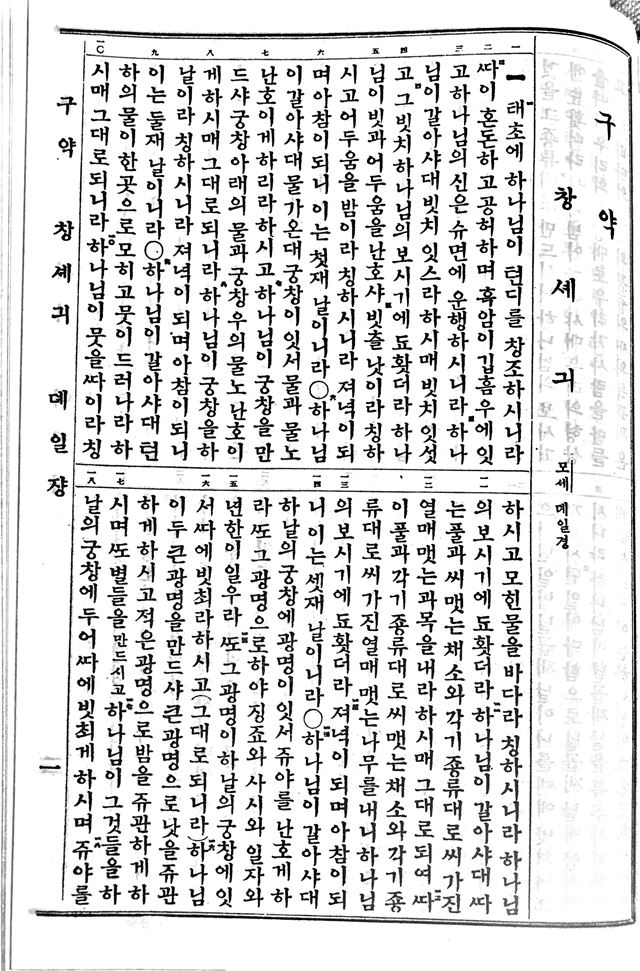 구약
창셰긔
모세 뎨일경
一 二 三 四 五 六 七 八 九 一〇
一 태초에하나님이텬디를창조하시니라
ᄯᅡ이혼돈하고공허하며흑암이깁흠우에잇
고하나님의신은슈면에운행하시니라하나
님이갈아샤대빗치잇스라하시매빗치잇섯
고그빗치하나님의보시기에됴홧더라하나
님이빗과어두움을난호샤빗츨낫이라칭하
시고어두움을밤이라칭하시니라져녁이되
며아참이되니이는첫재날이니라〇하나님
이갈아샤대물가온대궁창이잇서물과물노
난호이게하리라하시고하나님이궁창을만
드샤궁창아래의물과궁창우의물노난호이
게하시매그대로되니라하나님이궁창을하
날이라칭하시니라져녁이되며아참이되니
이는둘재날이니라〇하나님이갈아샤대텬
하의물이한곳으로모히고뭇이드러나라하
시매그대로되니라하나님이뭇을ᄯᅡ이라칭
一一 一二 一三 一四 一五 一六 一七 一八
하시고모힌물을바다라칭하시니라하나님
의보시기에됴홧더라하나님이갈아샤대ᄯᅡ
는풀과씨맷는채소와각기죵류대로씨가진
열매맷는과목을내라하시매그대로되여ᄯᅡ
이풀과각기죵류대로씨맷는채소와각기죵
류대로씨가진열매맷는나무를내니하나님
의보시기에됴홧더라져녁이되며아참이되
니이는셋재날이니라〇하나님이갈아샤대
하날의궁창에광명이잇서쥬야를난호게하
라ᄯᅩ그광명으로하야징죠와사시와일자와
년한이일우라ᄯᅩ그광명이하날의궁창에잇
서ᄯᅡ에빗최라하시고(그대로되니라)하나님
이두큰광명을만드샤큰광명으로낫을쥬관
하게하시고적은광명으로밤을쥬관하게하
시며ᄯᅩ별들을만드시고하나님이그것들을하
날의궁창에두어ᄯᅡ에빗최게하시며쥬야를
구약 창셰긔 뎨일쟝
一